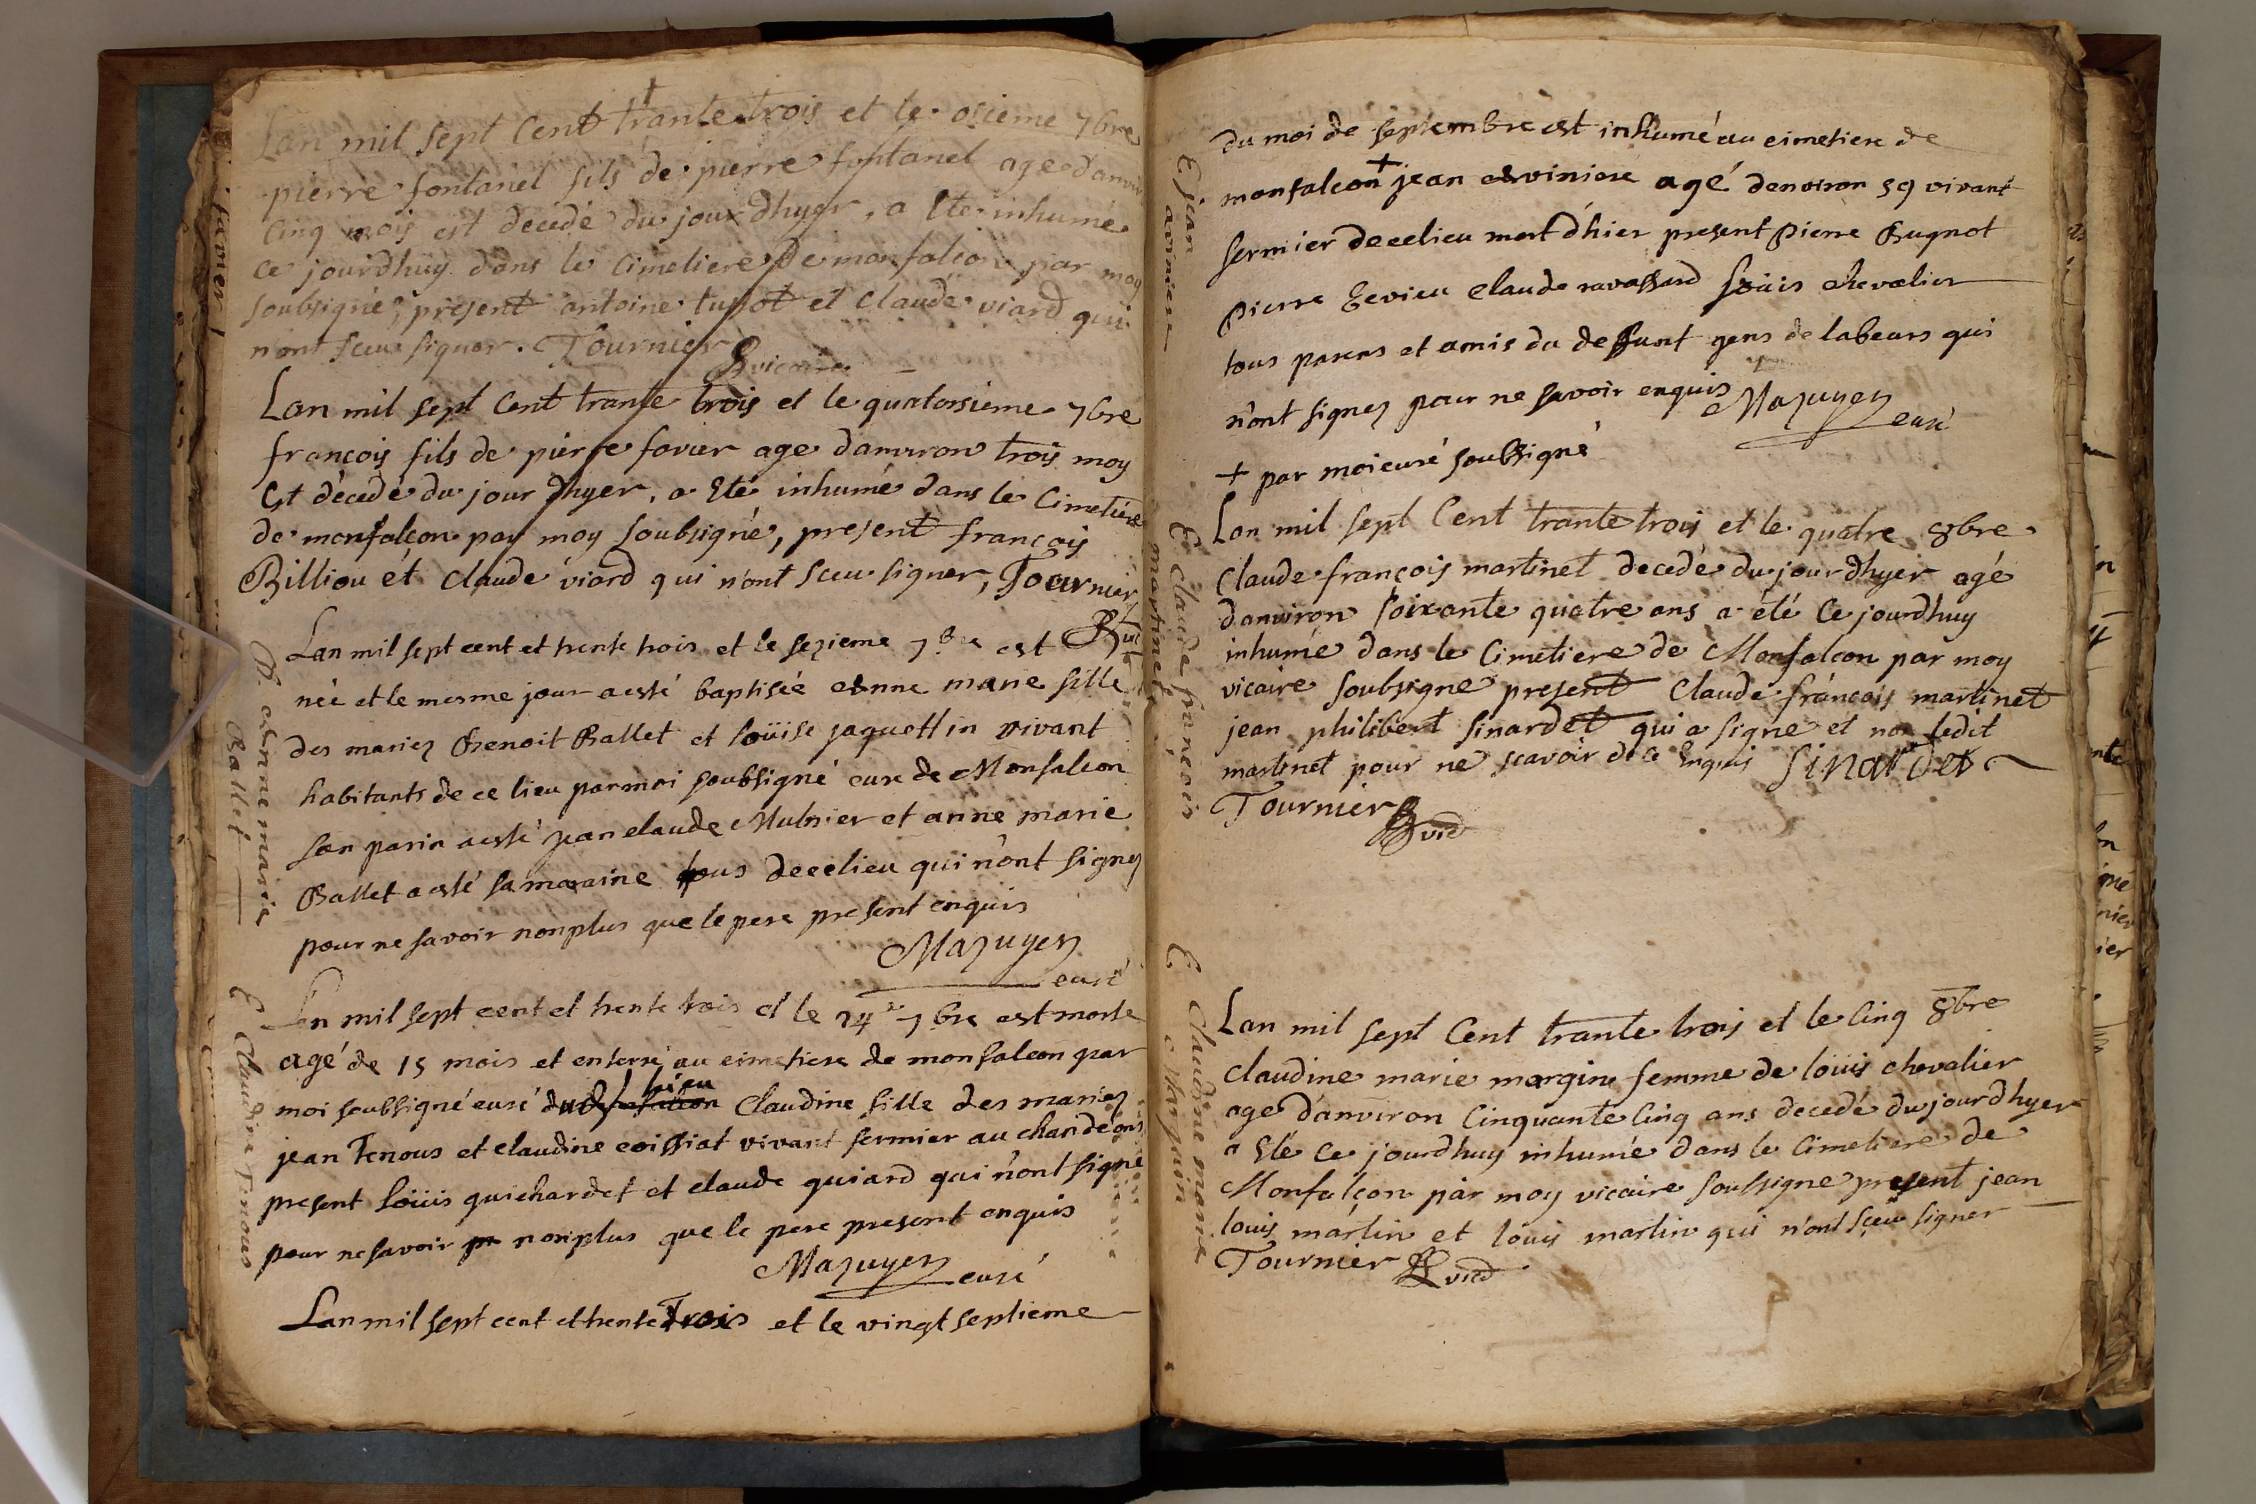 Lan mil sept Cent trante trois et le osieme 7bre
pierre fontanel fils de pierre fontanel age danviron
Cinq mois est decedé du jour dhyer, a Eté inhumé
ce jourdhuy dans le Cimetiere de monfalcon par moy
soubsigné, present antoine tupot et claude viard qui
n'ont sceu signer. Tournier
vicaire
Lan mil sept Cent trante trois et le quatorsieme 7bre
françois fils de pierre favier age danviron trois moy
Est décedé du jour dhyer, a Eté inhumé dans le Cimetiere
de monfalcon par moy soubsigné, present françois
Billiou et Claude viard qui n'ont sceu signer, Tournier
vic
Lan mil sept cent et trente trois et le sezieme 7bre est
née et le mesme jour a esté baptisée anne marie fille
des mariez Benoit Ballet et Loüise jaquettin vivant
habitants de ce lieu par moi soubsigné curé de Monfalcon
son parin a esté jean claude Mulnier et anne marie
Ballet a esté sa maraine tous de ce lieu qui n'ont signez
pour ne savoir non plus que le pere present enquis
Mazuyer
curé
Lan mil sept cent et trente trois et le 24e 7bre est morte
agé de 15 mois et enterré au cimetiere de monfalcon par
moi soubsigné curé du lieu Claudine fille des mariez
jean Tenous et claudine coissiat vivant fermier au chandéons
present Loüis guichardet et claude guiard qui n'ont signé
pour ne savoir non plus que le pere present enquis
Mazuyer curé
Lan mil sept cent et trente Trois et le vingt septieme
B. anne marie
Ballet
E Claudine Tenous
du moi de septembre est inhumé au cimetiere de
monfalcon + jean aviniere agé denviron 59 vivant
fermier de ce lieu mort d'hier present Pierre Bugnot
Pierre Gevieu Claude ravassard Loüis chevalier
tous parens et amis du deffunt gens de labeurs qui
n'ont signez pour ne savoir enquis Mazuyer
curé
+ par moi curé soubsigné
Lan mil sept Cent trante trois et le quatre 8bre
Claude françois martinet decedé du jour dhyer agé
danviron soixante quatre ans a été Ce jourdhuy
inhumé dans le Cimetiere de Monfalcon par moy
vicaire soubsigne present Claude françois martinet
jean philibert sinardet qui a signe et non ledit
martinet pour ne scavoir de ce Enquis Sinardet
Tournier
vic
Lan mil sept Cent trante trois et le Cinq 8bre
Claudine marie margin femme de loüis chevalier
age danviron Cinquante Cinq ans decedé du jour dhyer
a Eté Ce jourdhuy inhumé dans le Cimetiere de
Monfalcon par moy vicaire soussigne present jean
louis martin et louis martin qui n'ont sçeu signer
Tournier vic
E jean
aviniere
E Claude françois
martinet
E Claudine marie